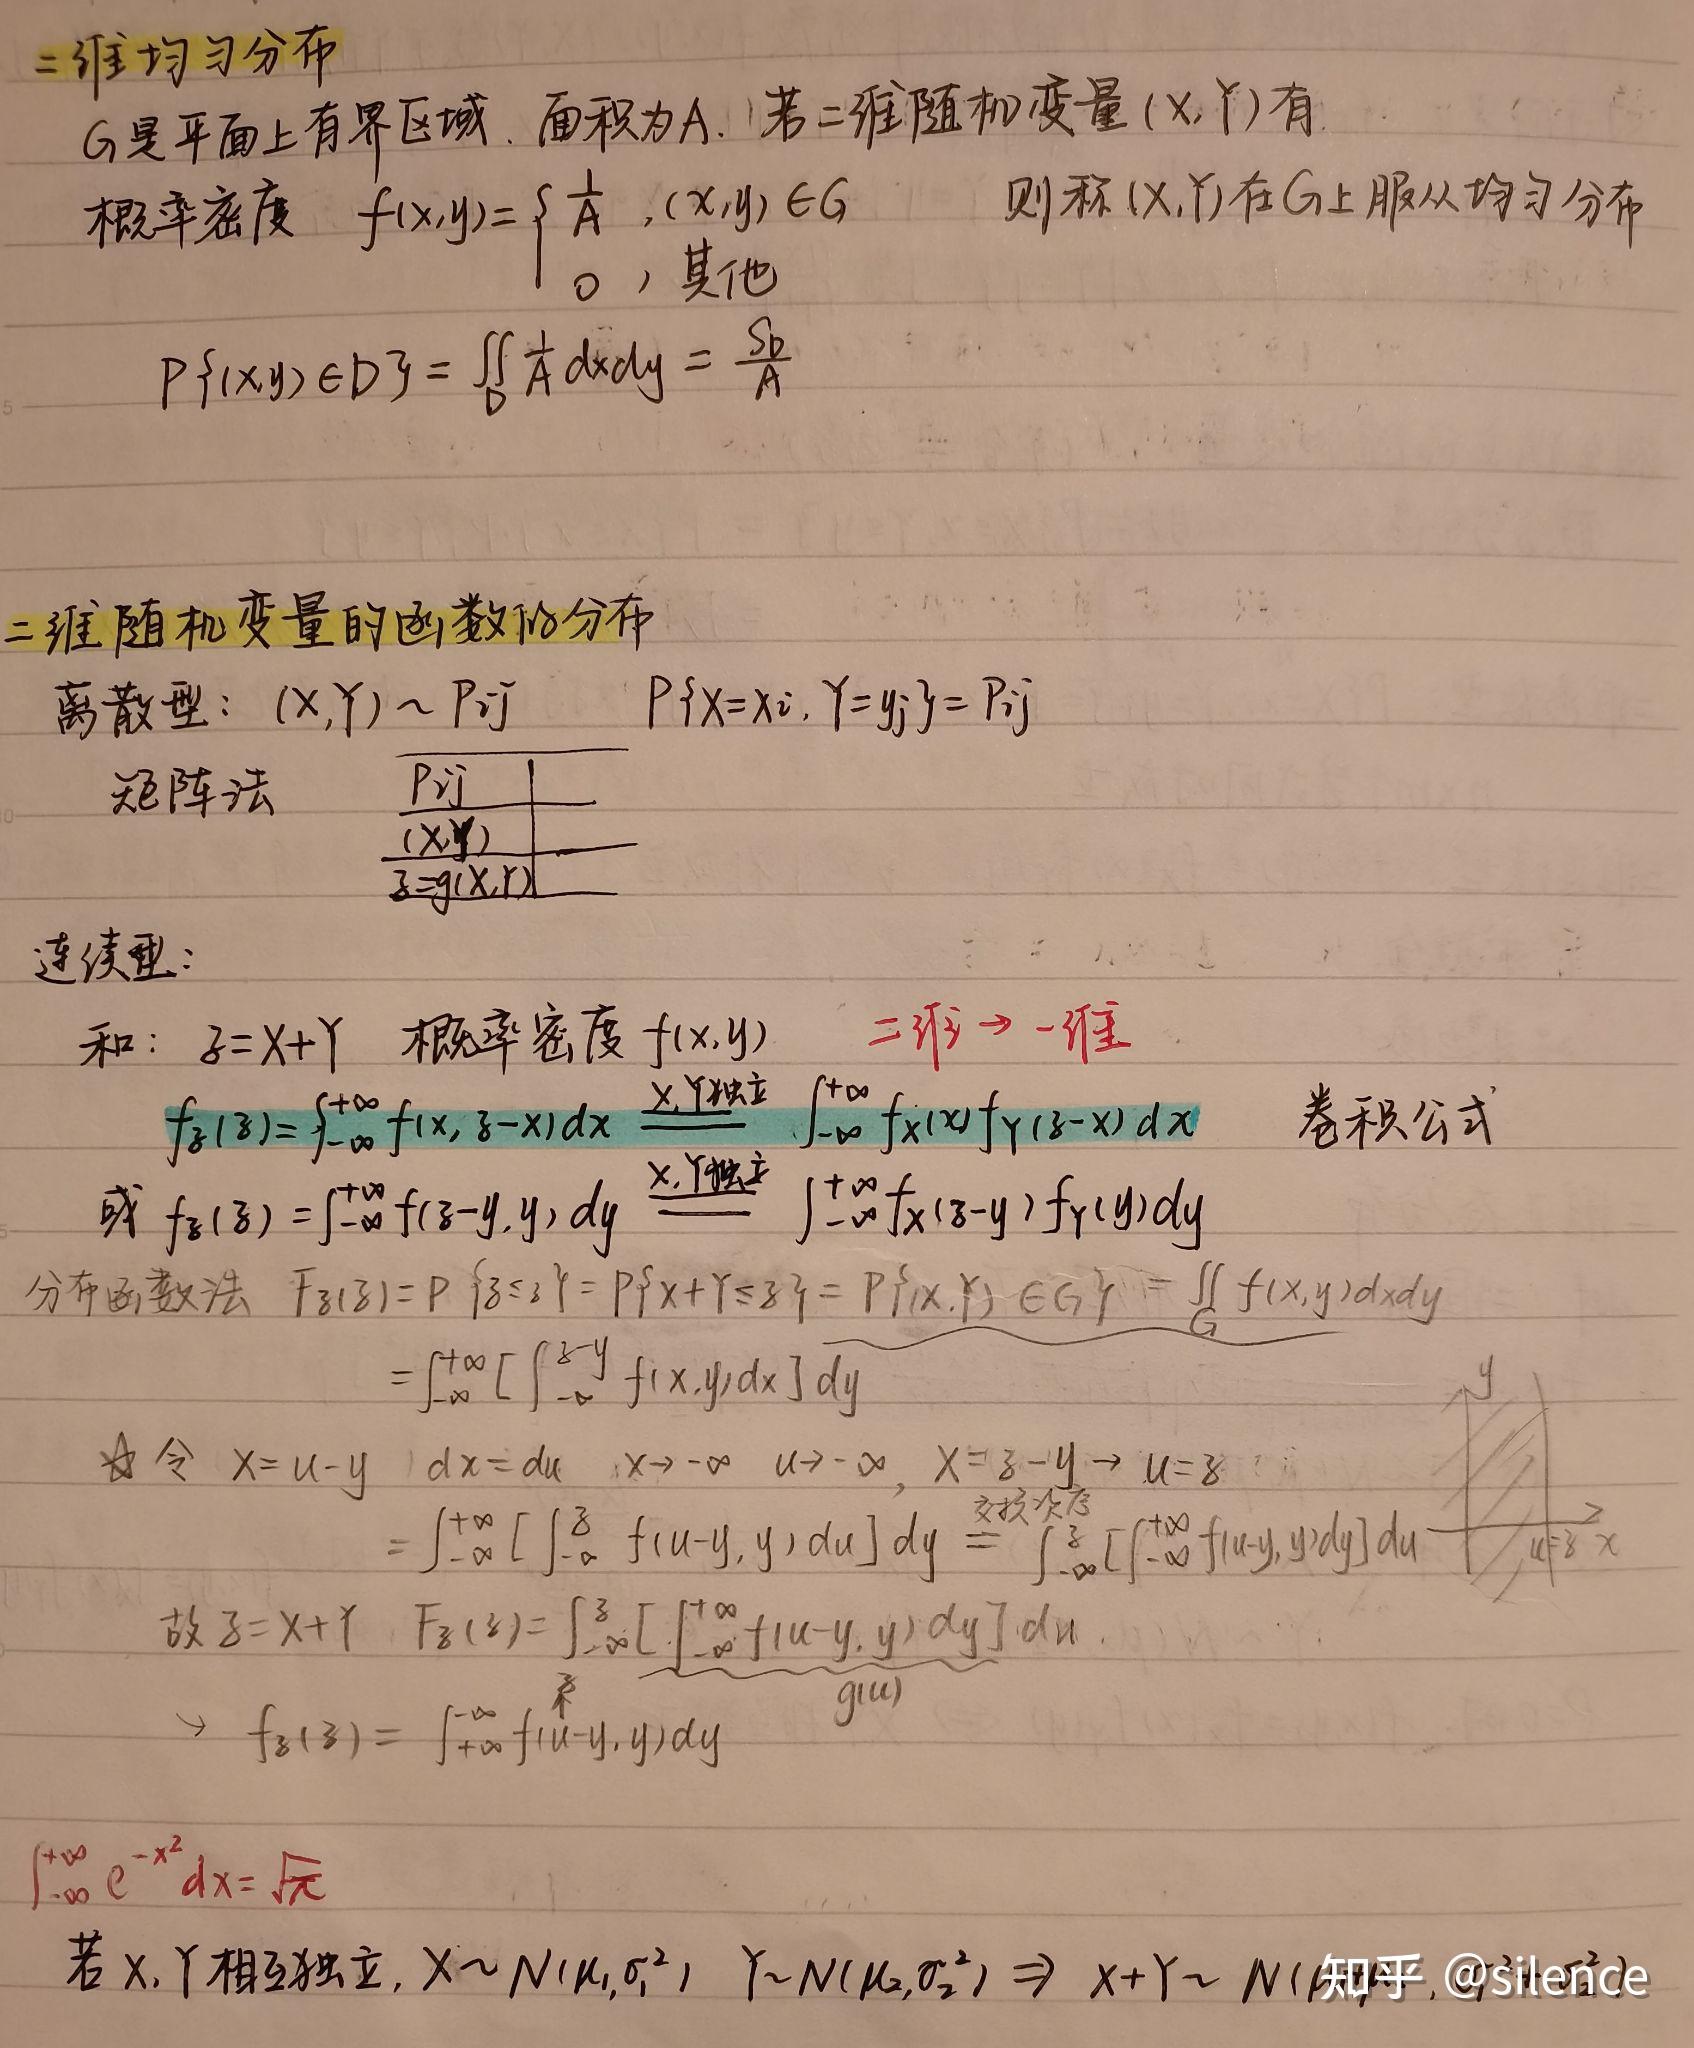 二维均匀分布
G是平面上有界区域. 面积为A. 若二维随机变量(X,Y)有
概率密度 f(x,y)={ 1/A ,(x,y)∈G 则称(X,Y)在G上服从均匀分布
0 , 其他
P{(X,y)∈D}=∬_D 1/A dxdy = S_D/A
二维随机变量的函数的分布
离散型: (X,Y)~Pij P{X=xi, Y=yj}=Pij
矩阵法 Pij
(X,Y)
z=g(X,Y)
连续型:
和: z=X+Y 概率密度 f(x,y) 二维→一维
f_z(z)=∫_{-∞}^{+∞} f(x, z-x)dx =(X,Y独立)= ∫_{-∞}^{+∞} f_X(x) f_Y(z-x) dx 卷积公式
或 f_z(z)=∫_{-∞}^{+∞} f(z-y, y) dy =(X,Y独立)= ∫_{-∞}^{+∞} f_X(z-y) f_Y(y)dy
分布函数法 F_z(z)=P{z≤z}=P{X+Y≤z}=P{(X,Y)∈G}=∬_G f(x,y)dxdy
=∫_{-∞}^{+∞}[∫_{-∞}^{z-y} f(x,y)dx]dy
☆令 x=u-y dx=du x→-∞ u→-∞, x=z-y→u=z
=∫_{-∞}^{+∞}[∫_{-∞}^{z} f(u-y,y)du]dy =(交换次序)= ∫_{-∞}^{z}[∫_{-∞}^{+∞} f(u-y,y)dy]du
y
u=z x
故z=X+Y F_z(z)=∫_{-∞}^{z}[∫_{-∞}^{+∞} f(u-y,y)dy]du
g(u)
↘ f_z(z)=∫_{+∞}^{-∞} f(u-y,y)dy
∫_{-∞}^{+∞} e^{-x²}dx=√π
若X,Y相互独立, X~N(μ₁,σ₁²) Y~N(μ₂,σ₂²) ⇒ X+Y~N(
知乎 @silence